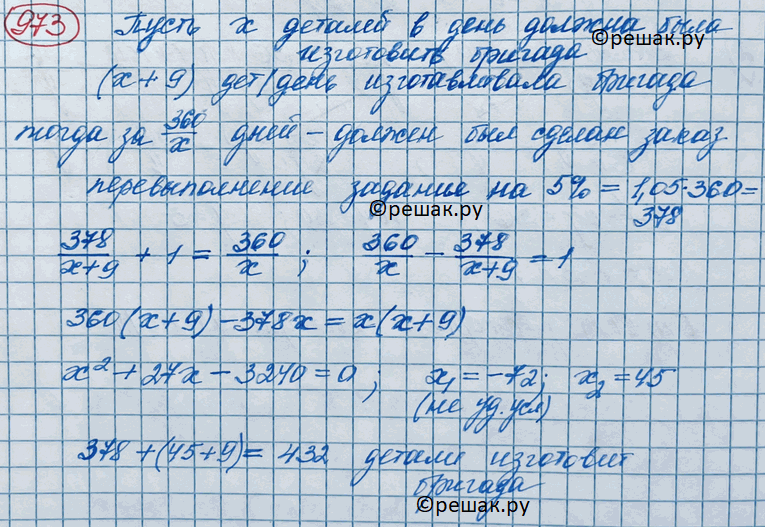 973 Пусть x деталей в день должна была
©решак.ру
изготовить бригада
(x+9) дет/день изготавливала бригада
тогда за 360/x дней – должен был сделан заказ
перевыполнение задание на 5% = 1,05·360=
378
©решак.ру
378/(x+9) + 1 = 360/x ; 360/x − 378/(x+9) = 1
360(x+9) − 378x = x(x+9)
x² + 27x − 3240 = 0 ; x₁ = −72; x₂ = 45
(не уд. усл)
378 + (45+9) = 432 детали изготовит
бригада
©решак.ру